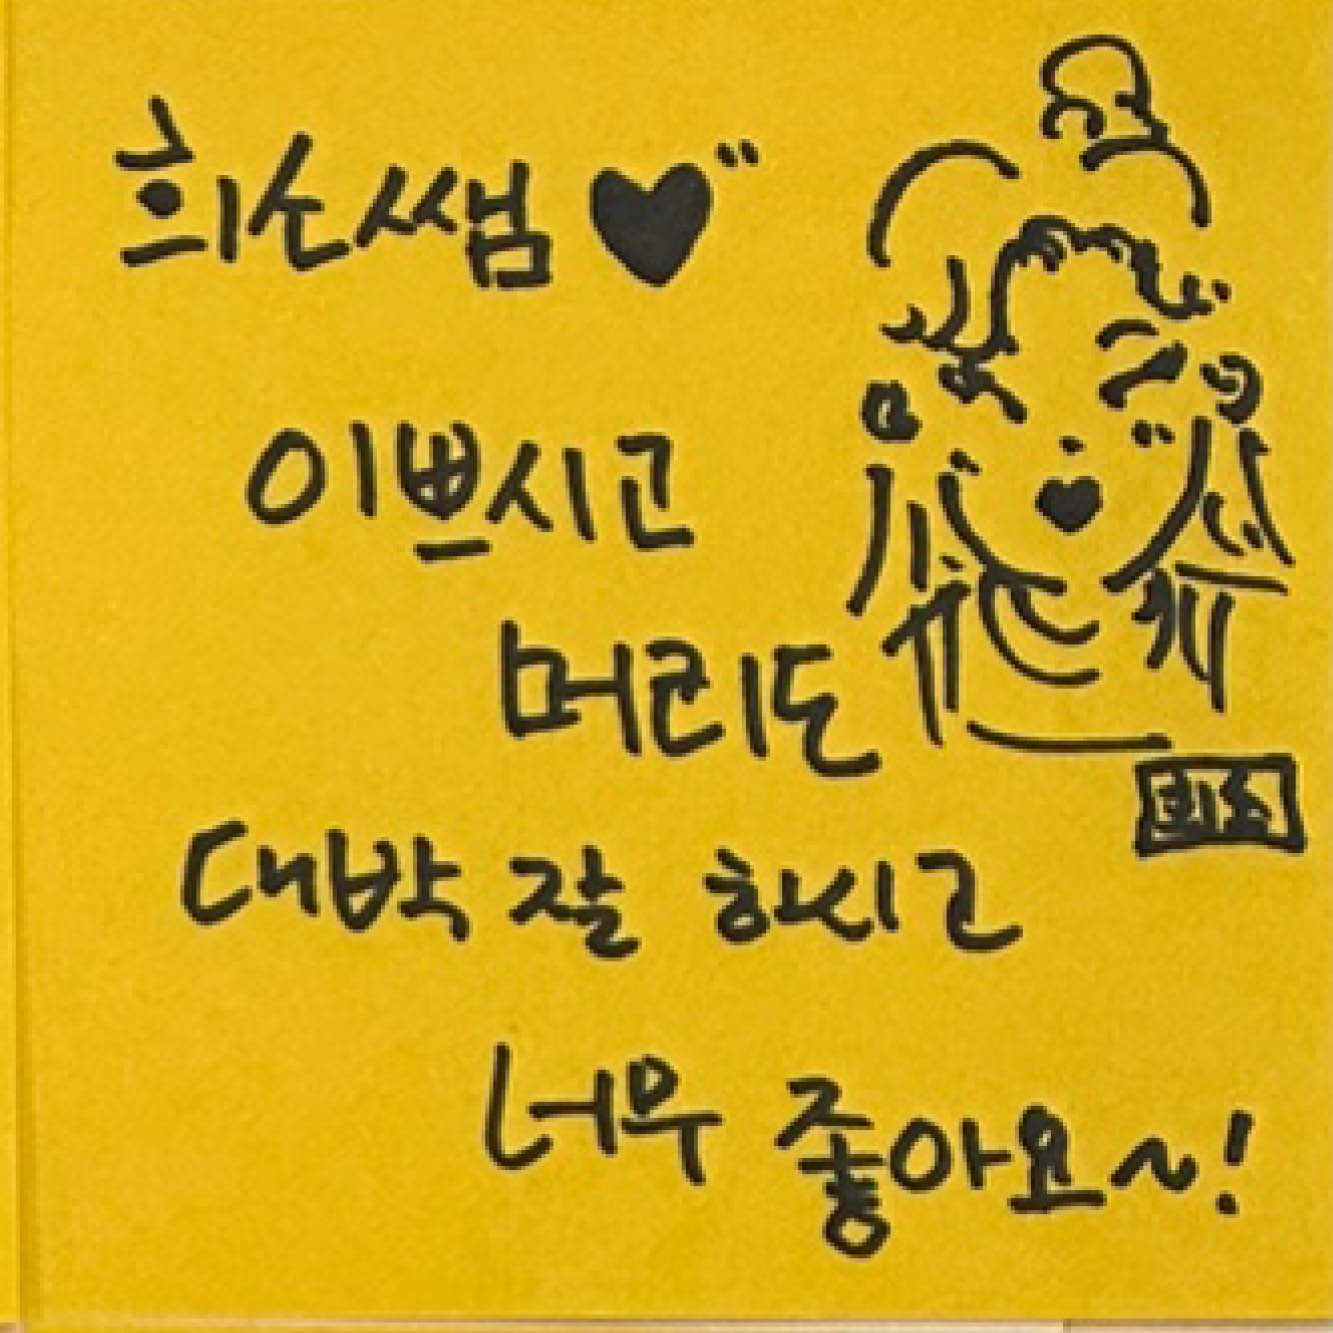 희손쌤♥"
이쁘시고
머리도
희손
대박 잘 하시고
너무 좋아요~!